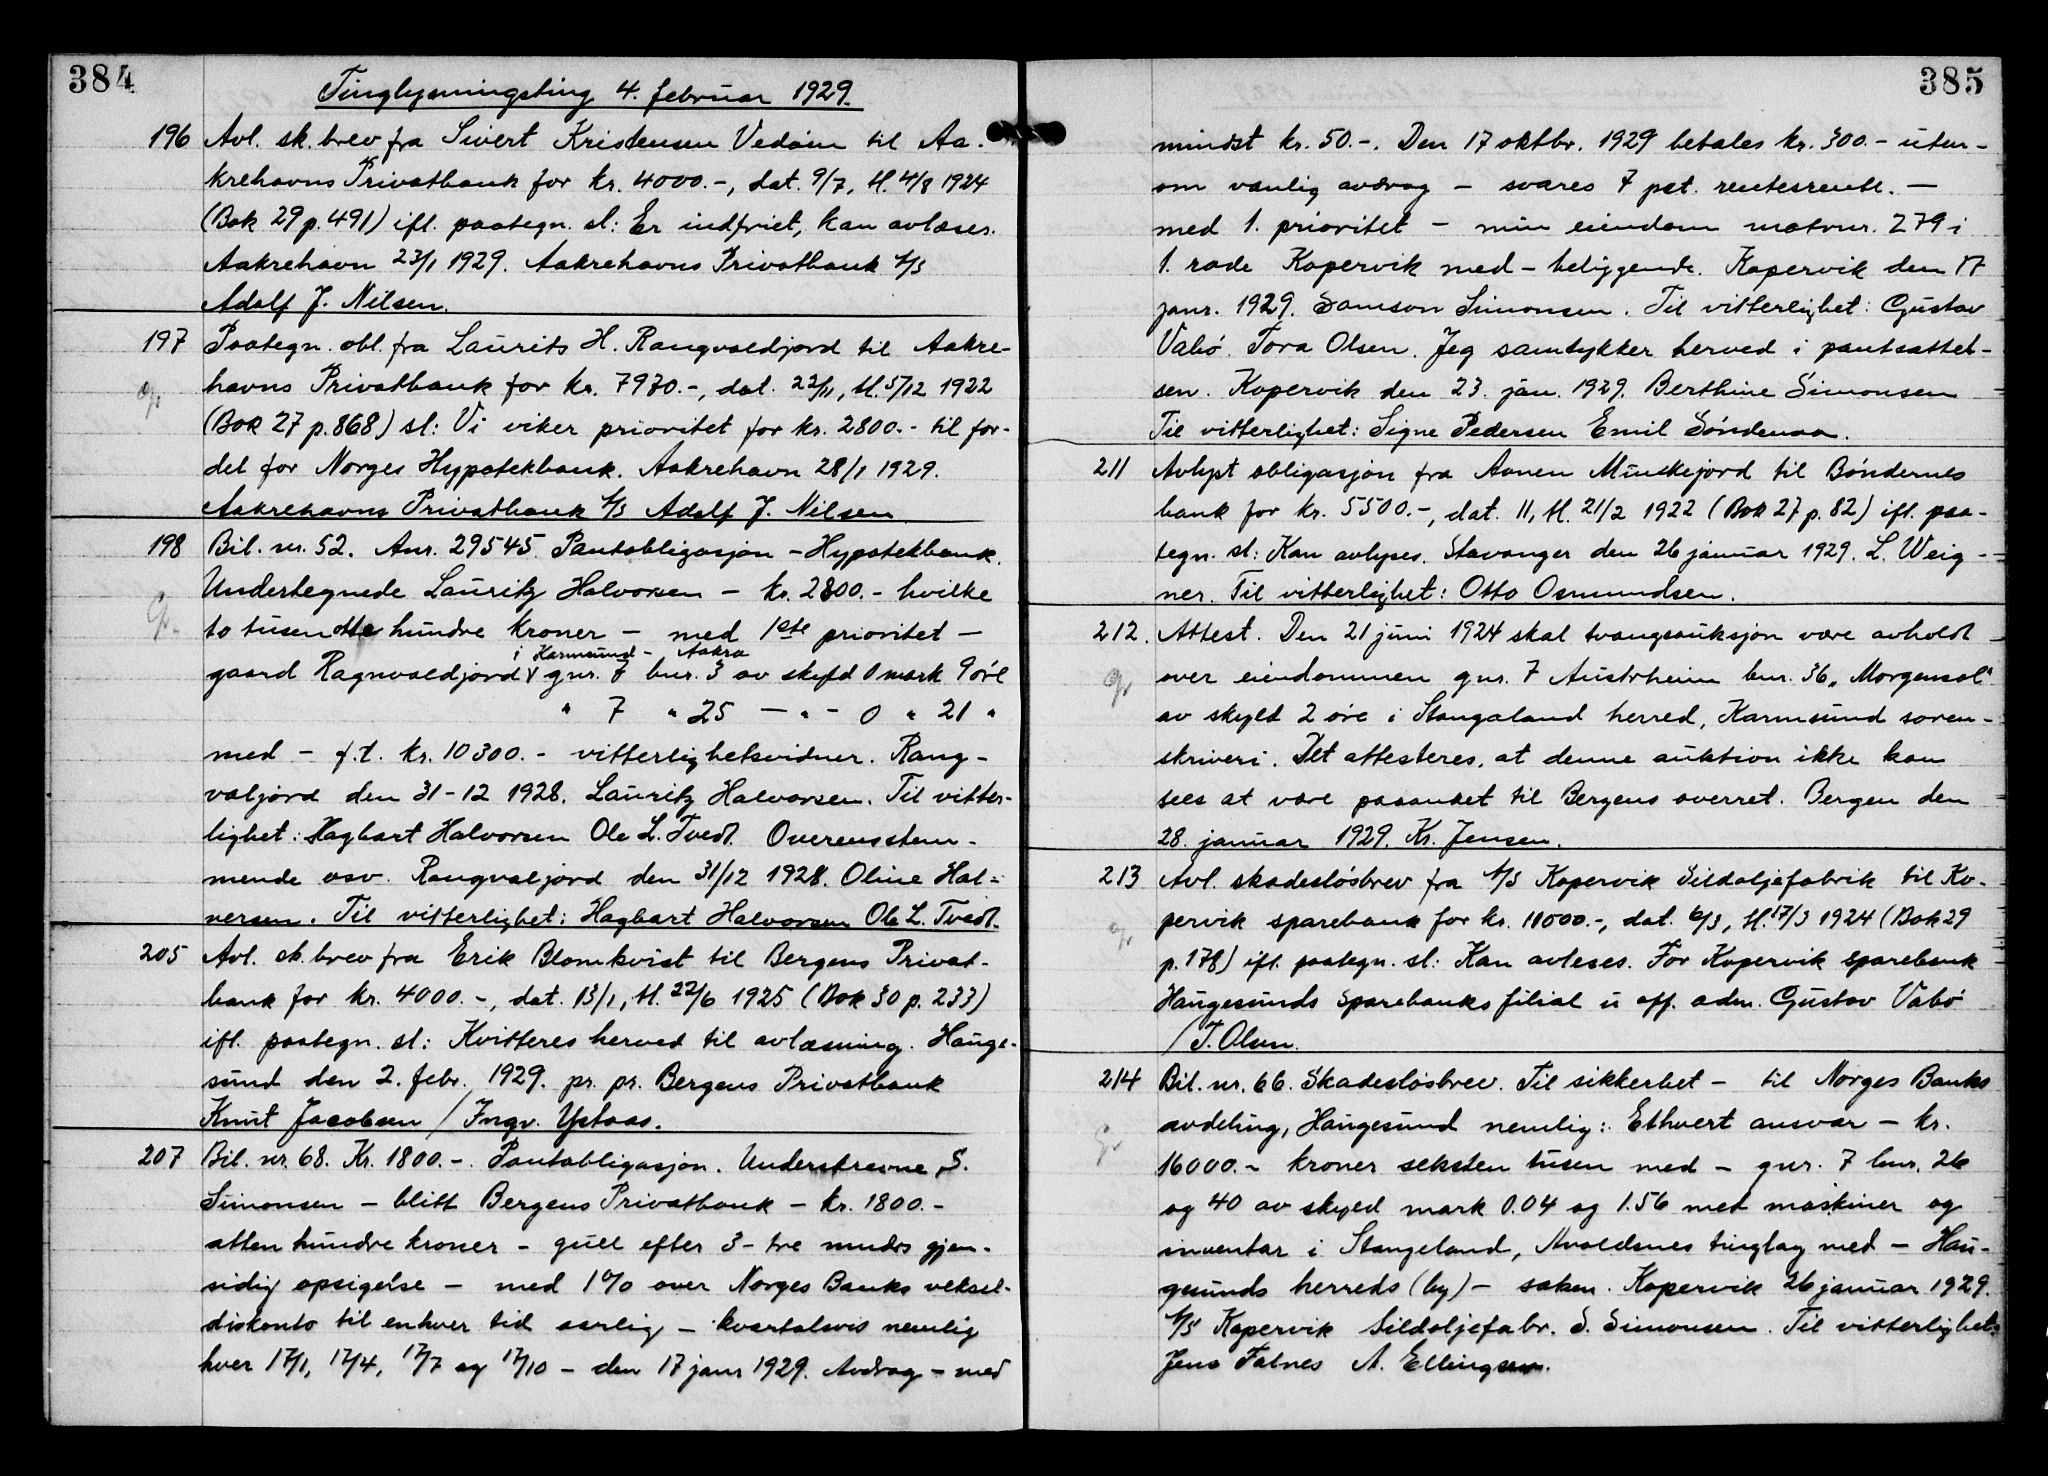 384
Tinglysningsting 4. februar 1929.
196 Avl. sk. brev fra Sivert Kristensen Vedøen til Aa-
krehavns Privatbank for kr. 4000.-, dat. 9/7, tl. 4/8 1924
(Bok 29 p. 491) ifl. paategn. sl: Er indfriet, kan avlæses.
Aakrehavn 23/1 1929. Aakrehavns Privatbank A/S
Adolf J. Nilsen.
197 Paategn. obl. fra Laurits H. Rangvaldjord til Aakre-
havns Privatbank for kr. 7970.-, dat. 22/11, tl. 5/12 1922
(Bok 27 p. 868) sl: Vi viker prioritet for kr. 2800.- til for-
del for Norges Hypotekbank. Aakrehavn 28/1 1929.
Aakrehavns Privatbank A/S Adolf J. Nilsen
198 Bil. nr. 52. Anr. 29545. Pantobligasjon - Hypotekbank.
Undertegnede Lauritz Halvorsen - kr. 2800.- hvilke
to tusen otte hundre kroner - med 1ste prioritet -
i Karmsund - Aakra
gaard Ragnvaldjord gnr. 7 bnr. 3 av skyld 0 mark 9 øre
" 7 " 25 - " - 0 " 21 "
med - f.t. kr. 10300.- vitterlighetsvidner. Rang-
valjord den 31-12 1928. Lauritz Halvorsen. Til vitter-
lighet: Hagbart Halvorsen Ole L. Tvedt. Overensstem-
mende osv. Rangvaljord den 31/12 1928. Oline Hal-
versen. Til vitterlighet: Hagbart Halvorsen Ole L. Tvedt.
205 Avl. sk. brev fra Erik Blomkvist til Bergens Privat-
bank for kr. 4000.-, dat. 13/1, tl. 22/6 1925 (Bok 30 p. 233)
ifl. paategn. sl: Kvitteres herved til avlæsning. Hauge-
sund den 2. febr. 1929. pr. pr. Bergens Privatbank
Knut Jacobsen / Ingv. Ystaas.
207 Bil. nr. 68. Kr. 1800.-. Pantobligasjon. Underskrevne, S.
Simonsen - blitt Bergens Privatbank - kr. 1800.-
atten hundre kroner - gull efter 3- tre mndrs gjen-
sidig opsigelse - med 1% over Norges Banks veksel-
diskonto til enhver tid aarlig - kvartalsvis nemlig
hver 17/1, 17/4, 17/7 og 17/10 - den 17 janr 1929. Avdrag - med
385
mindst kr. 50.-. Den 17 oktbr. 1929 betales kr. 300.- uten-
om vanlig avdrag - svares 7 pct. rentesrente. -
med 1. prioritet - min eiendom matrnr. 279 i
1. rode Kopervik med - beliggende. Kopervik den 17
janr. 1929. Samson Simonsen. Til vitterlighet: Gustav
Vabø. Tora Olsen. Jeg samtykker herved i pantsættel-
sen. Kopervik den 23. jan. 1929. Berthine Simonsen
Til vitterlighet: Signe Pedersen Emil Søndenaa.
211 Avlyst obligasjon fra Aanen Munkejord til Bøndernes
bank for kr. 5500.-, dat. 11, tl. 21/2 1922 (Bok 27 p. 82) ifl. paa-
tegn. sl: Kan avlyses. Stavanger den 26 januar 1929. L. Weig-
ner. Til vitterlighet: Otto Osmundsen.
212. Attest. Den 21 juni 1924 skal tvangsauksjon være avholdt
over eiendommen gnr. 7 Austrheim bnr. 36 "Morgensol"
av skyld 2 øre i Stangaland herred, Karmsund soren-
skriveri. Det attesteres, at denne auktion ikke kan
sees at være paaanket til Bergens overret. Bergen den
28. januar 1929. Kr. Jensen.
213 Avl. skadesløsbrev fra A/S Kopervik Sildoljefabrik til Ko-
pervik sparebank for kr. 11000.-, dat. 6/3, tl. 17/3 1924 (Bok 29
p. 178) ifl. paategn. sl: Kan avleses. For Kopervik sparebank
Haugesunds Sparebanks filial u. off. adm. Gustav Vabø
/T. Olsen.
214 Bil. nr. 66. Skadesløsbrev. Til sikkerhet - til Norges Banks
avdeling, Haugesund nemlig: Ethvert ansvar - kr.
16000.- kroner seksten tusen med - gnr. 7 bnr. 26
og 40 av skyld mark 0.04 og 1.56 med maskiner og
inventar i Stangeland, Avaldsnes tinglag med - Hau-
gesunds herreds (by) - saken. Kopervik 26 januar 1929.
A/S Kopervik Sildoljefabr. S. Simonsen. Til vitterlighet:
Jens Falnes A. Ellingsen.